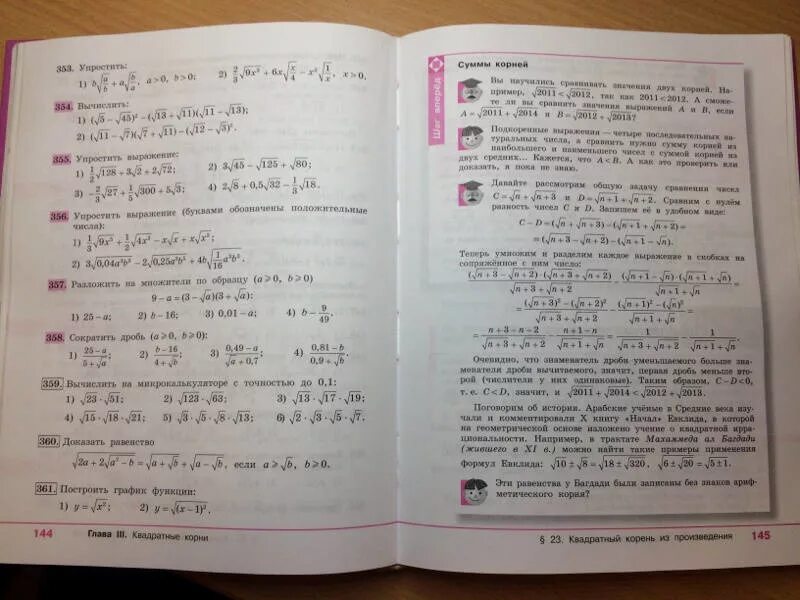 353. Упростить:
1) b√(a/b) + a√(b/a), a>0, b>0; 2) 2/3 √(9x³) + 6x√(x/4) − x²√(1/x), x>0.
354. Вычислить:
1) (√5 − √45)² − (√13 + √11)(√11 − √13);
2) (√11 − √7)(√7 + √11) − (√12 − √3)².
355. Упростить выражение:
1) 1/2 √128 + 3√2 + 2√72; 2) 3√45 − √125 + √80;
3) −2/3 √27 + 1/5 √300 + 5√3; 4) 2√8 + 0,5√32 − 1/3 √18.
356. Упростить выражение (буквами обозначены положительные
числа):
1) 1/3 √(9x³) + 1/2 √(4x³) − x√x + x√(x³);
2) 3√(0,04a³b³) − 2√(0,25a³b³) + 4b√(1/16 a³b³).
357. Разложить на множители по образцу (a⩾0, b⩾0)
9 − a = (3 − √a)(3 + √a):
1) 25 − a; 2) b − 16; 3) 0,01 − a; 4) b − 9/49.
358. Сократить дробь (a⩾0, b⩾0):
1) (25 − a)/(5 + √a); 2) (b − 16)/(4 + √b); 3) (0,49 − a)/(√a + 0,7); 4) (0,81 − b)/(0,9 + √b).
359. Вычислить на микрокалькуляторе с точностью до 0,1:
1) √23·√51; 2) √123·√63; 3) √13·√17·√19;
4) √15·√18·√21; 5) √3·√5·√8·√13; 6) √2·√3·√5·√7.
360. Доказать равенство
√(2a + 2√(a² − b)) = √(a + √b) + √(a − √b), если a⩾√b, b⩾0.
361. Построить график функции:
1) y = √(x²); 2) y = √((x − 1)²).
144 Глава III. Квадратные корни
Шаг вперёд
Суммы корней
Вы научились сравнивать значения двух корней. На-
пример, √2011 < √2012, так как 2011 < 2012. А сможе-
те ли вы сравнить значения выражений A и B, если
A = √2011 + √2014 и B = √2012 + √2013?
Подкоренные выражения — четыре последовательных на-
туральных числа, а сравнить нужно сумму корней из
наибольшего и наименьшего чисел с суммой корней из
двух средних... Кажется, что A < B. А как это проверить или
доказать, я пока не знаю.
Давайте рассмотрим общую задачу сравнения чисел
C = √n + √(n + 3) и D = √(n + 1) + √(n + 2). Сравним с нулём
разность чисел C и D. Запишем её в удобном виде:
C − D = (√n + √(n + 3)) − (√(n + 1) + √(n + 2)) =
= (√(n + 3) − √(n + 2)) − (√(n + 1) − √n).
Теперь умножим и разделим каждое выражение в скобках на
сопряжённое с ним число:
(√(n + 3) − √(n + 2))·(√(n + 3) + √(n + 2))/(√(n + 3) + √(n + 2)) − (√(n + 1) − √n)·(√(n + 1) + √n)/(√(n + 1) + √n) =
= ((√(n + 3))² − (√(n + 2))²)/(√(n + 3) + √(n + 2)) − ((√(n + 1))² − (√n)²)/(√(n + 1) + √n) =
= (n + 3 − n − 2)/(√(n + 3) + √(n + 2)) − (n + 1 − n)/(√(n + 1) + √n) = 1/(√(n + 3) + √(n + 2)) − 1/(√(n + 1) + √n).
Очевидно, что знаменатель дроби уменьшаемого больше зна-
менателя дроби вычитаемого, значит, первая дробь меньше вто-
рой (числители у них одинаковые). Таким образом, C − D < 0,
т. е. C < D, значит, и √2011 + √2014 < √2012 + √2013.
Поговорим об истории. Арабские учёные в Средние века изу-
чали и комментировали X книгу «Начал» Евклида, в которой
на геометрической основе изложено учение о квадратной ирра-
циональности. Например, в трактате Махаммеда ал Багдади
(жившего в XI в.) можно найти такие примеры применения
формул Евклида: √10 ± √8 = √(18 ± √320), √(6 ± √20) = √5 ± 1.
Эти равенства у Багдади были записаны без знаков ариф-
метического корня?
§ 23. Квадратный корень из произведения 145